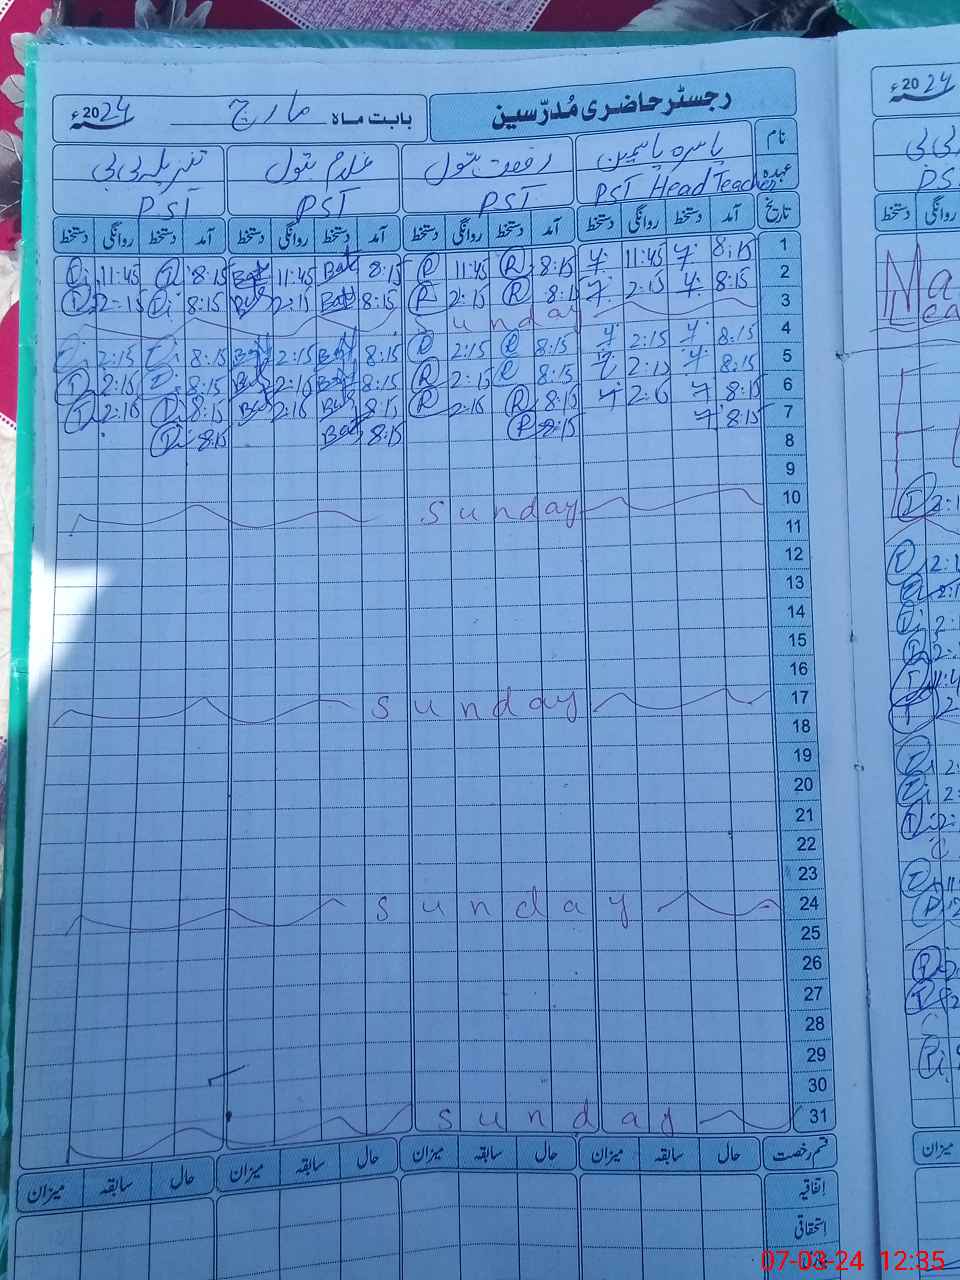 رجسٹر حاضری مُدرّسین
بابت ماہ مارچ 2024ء
نام یاسرہ یاسمین رفعت بتول بتول تنزیلہ بی بی
عہدہ PST Head Teacher PST PST PST
تاریخ آمد دستخط روانگی دستخط آمد دستخط روانگی دستخط آمد دستخط روانگی دستخط آمد دستخط روانگی دستخط
1 8:15 11:45 8:15 R 11:45 R 8:15 Bat 11:45 Bat 8:15 11:45
2 8:15 2:15 8:15 R 2:15 R 8:15 Bat 2:15 Bat 8:15 2:15
3 Sunday
4 8:15 2:15 8:15 R 2:15 R 8:15 Bat 2:15 Bat 8:15 2:15
5 8:15 2:15 8:15 R 2:15 R 8:15 Bat 2:16 Bat 8:15 2:16
6 8:15 2:16 8:15 R 2:16 R 8:15 Bat 2:16 Bat 8:15 2:16
7 8:15 8:15 R 8:15 Bat 8:15
8
9
10 Sunday
11
12
13
14
15
16
17 Sunday
18
19
20
21
22
23
24 Sunday
25
26
27
28
29
30
31 Sunday
قسم رخصت حال سابقہ میزان حال سابقہ میزان حال سابقہ میزان حال سابقہ میزان
اتفاقیہ
استحقاقی
2024
بی بی
دستخط روانگی
میزان
07-03-24 12:35